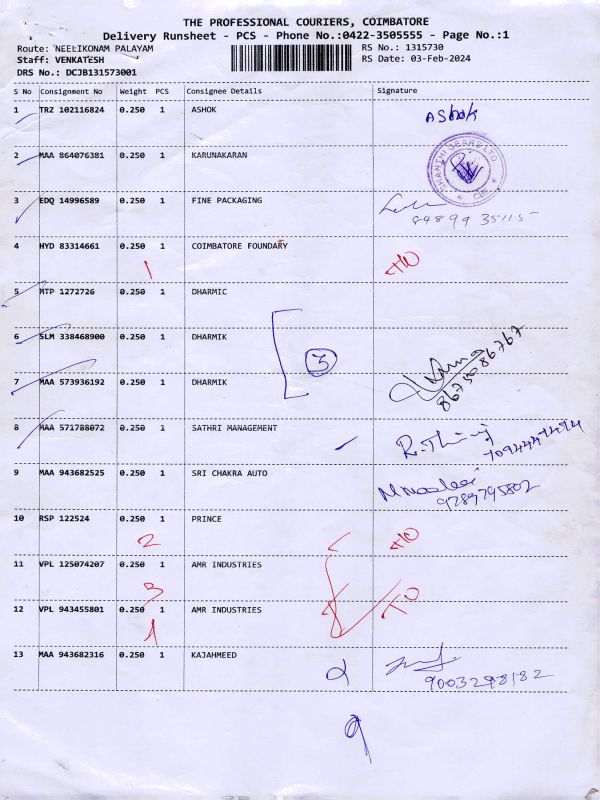 THE PROFESSIONAL COURIERS, COIMBATORE
Delivery Runsheet - PCS - Phone No.:0422-3505555 - Page No.:1
Route: NEELIKONAM PALAYAM RS No.: 1315730
Staff: VENKATESH RS Date: 03-Feb-2024
DRS No.: DCJB131573001
S No Consignment No Weight PCS Consignee Details Signature
1 TRZ 102116824 0.250 1 ASHOK ASHok
2 MAA 864076381 0.250 1 KARUNAKARAN SHANTHI GEARS LTD CBE
3 EDQ 14996589 0.250 1 FINE PACKAGING
84899 35115
4 HYD 83314661 0.250 1 COIMBATORE FOUNDARY
1
5 MTP 1272726 0.250 1 DHARMIC
6 SLM 338468900 0.250 1 DHARMIK
3
7 MAA 573936192 0.250 1 DHARMIK
8675086767
8 MAA 571788072 0.250 1 SATHRI MANAGEMENT
9 MAA 943682525 0.250 1 SRI CHAKRA AUTO
9289795802
10 RSP 122524 0.250 1 PRINCE
2
11 VPL 125074207 0.250 1 AMR INDUSTRIES
3
12 VPL 943455801 0.250 1 AMR INDUSTRIES
13 MAA 943682316 0.250 1 KAJAHMEED
9003298182
9